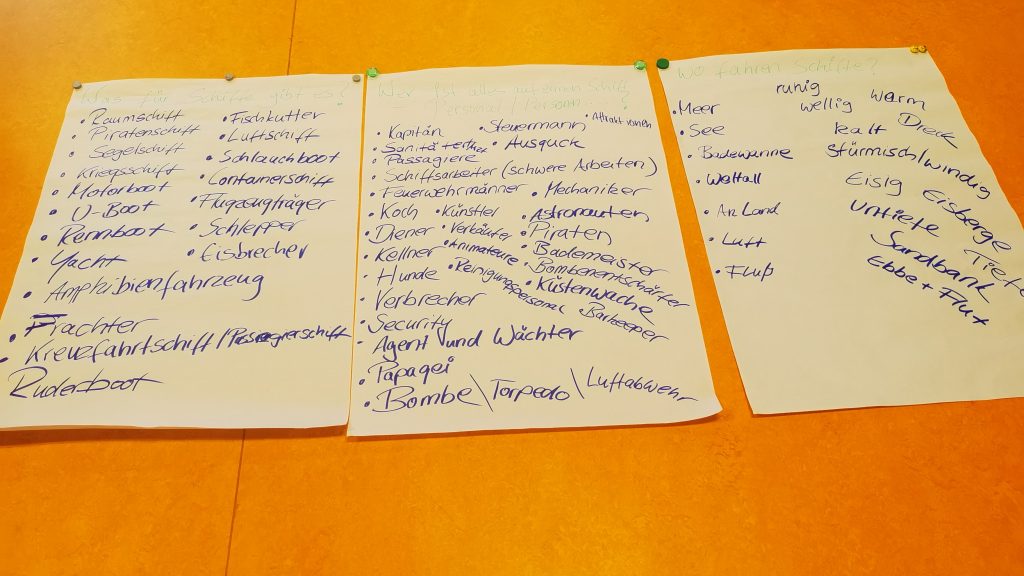 Was für Schiffe gibt es?
• Raumschiff
• Piratenschiff
• Segelschiff
• Kriegsschiff
• Motorboot
• U-Boot
• Rennboot
• Yacht
• Amphibienfahrzeug
• Frachter
- Kreuzfahrtschiff / Passagierschiff
Ruderboot
• Fischkutter
• Luftschiff
• Schlauchboot
• Containerschiff
• Flugzeugträger
• Schlepper
• Eisbrecher
Wer ist alles auf einem Schiff
Personal / Person...?
• Kapitän
• Sanitäter
• Passagiere
• Schiffsarbeiter (schwere Arbeiten)
• Feuerwehrmänner
• Koch
• Diener
• Kellner
• Hunde
• Verbrecher
• Security
• Agent und Wächter
• Papagei
• Bombe \ Torpedo \ Luftabwehr
• Steuermann
• Attraktionen
• Ausguck
• Mechaniker
• Künstler
• Astronauten
• Verkäufer
• Piraten
• Animateure
• Bademeister
• Reinigungspersonal
• Bombenentschärfer
• Küstenwache
• Barkeeper
Wo fahren Schiffe?
• Meer
• See
• Badewanne
• Weltall
• An Land
• Luft
• Fluß
ruhig
wellig
warm
kalt
Dreck
stürmisch/windig
Eisig
Eisberge
Untiefe
Tiefe
Sandbank
Ebbe + Flut